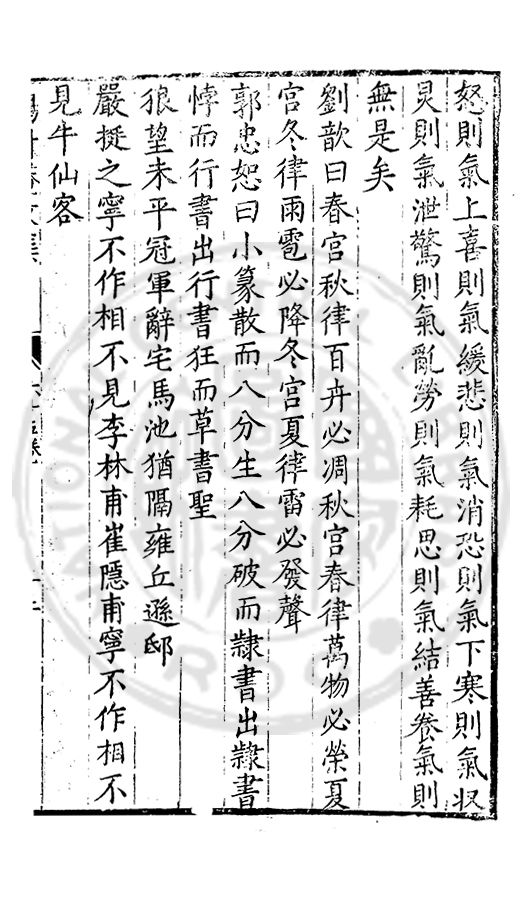 怒則氣上喜則氣緩悲則氣消恐則氣下寒則氣収
炅則氣泄驚則氣亂勞則氣耗思則氣結善飬氣則
無是矣
劉歆曰春宮秋律百卉必凋秋宮春律萬物必榮夏
宮冬律雨雹必降冬宮夏律雷必發聲
郭忠恕曰小篆散而八分生八分破而隸書出隸書
悖而行書出行書狂而草書聖
狼望未平冠軍辭宅馬池猶隔雍丘遜邸
嚴挺之寧不作相不見李林甫崔隱甫寧不作相不
見牛仙客